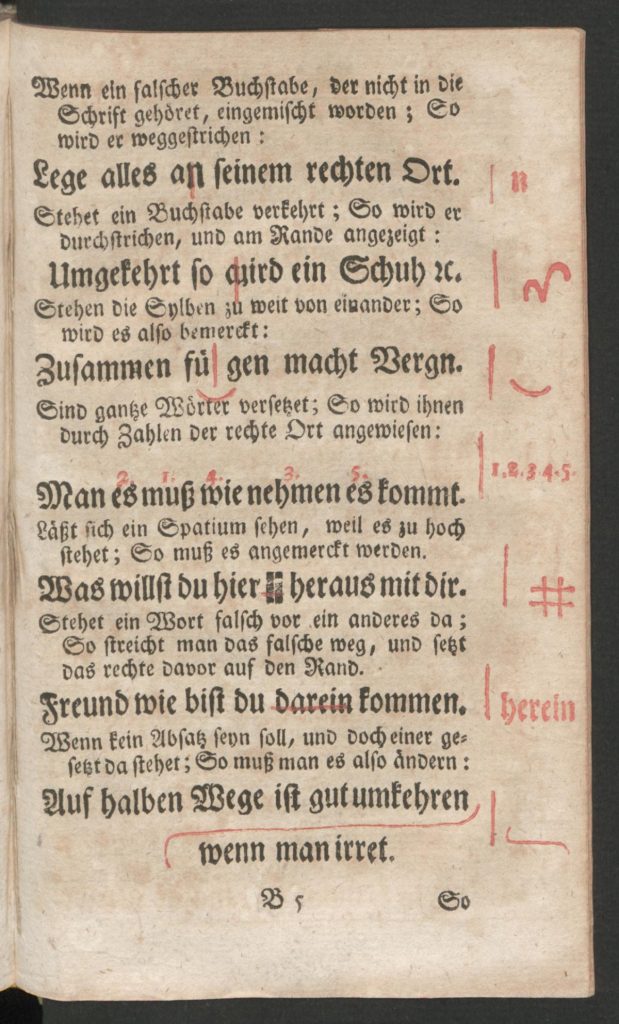 Wenn ein falscher Buchstabe, der nicht in die
Schrift gehöret, eingemischt worden; So
wird er weggestrichen:
Lege alles an seinem rechten Ort. | n
Stehet ein Buchstabe verkehrt; So wird er
durchstrichen, und am Rande angezeigt:
Umgekehrt so wird ein Schuh ꝛc.
Stehen die Sylben zu weit von einander; So
wird es also bemerckt:
Zusammen fü gen macht Vergn.
Sind gantze Wörter versetzet; So wird ihnen
durch Zahlen der rechte Ort angewiesen:
2. 1. 4. 3. 5. | 1.2.3.4.5.
Man es muß wie nehmen es kommt.
Läßt sich ein Spatium sehen, weil es zu hoch
stehet; So muß es angemerckt werden.
Was willst du hier heraus mit dir. | #
Stehet ein Wort falsch vor ein anderes da;
So streicht man das falsche weg, und setzt
das rechte davor auf den Rand.
Freund wie bist du darein kommen. | herein
Wenn kein Absatz seyn soll, und doch einer ge-
setzt da stehet; So muß man es also ändern:
Auf halben Wege ist gut umkehren
wenn man irret.
B 5 So